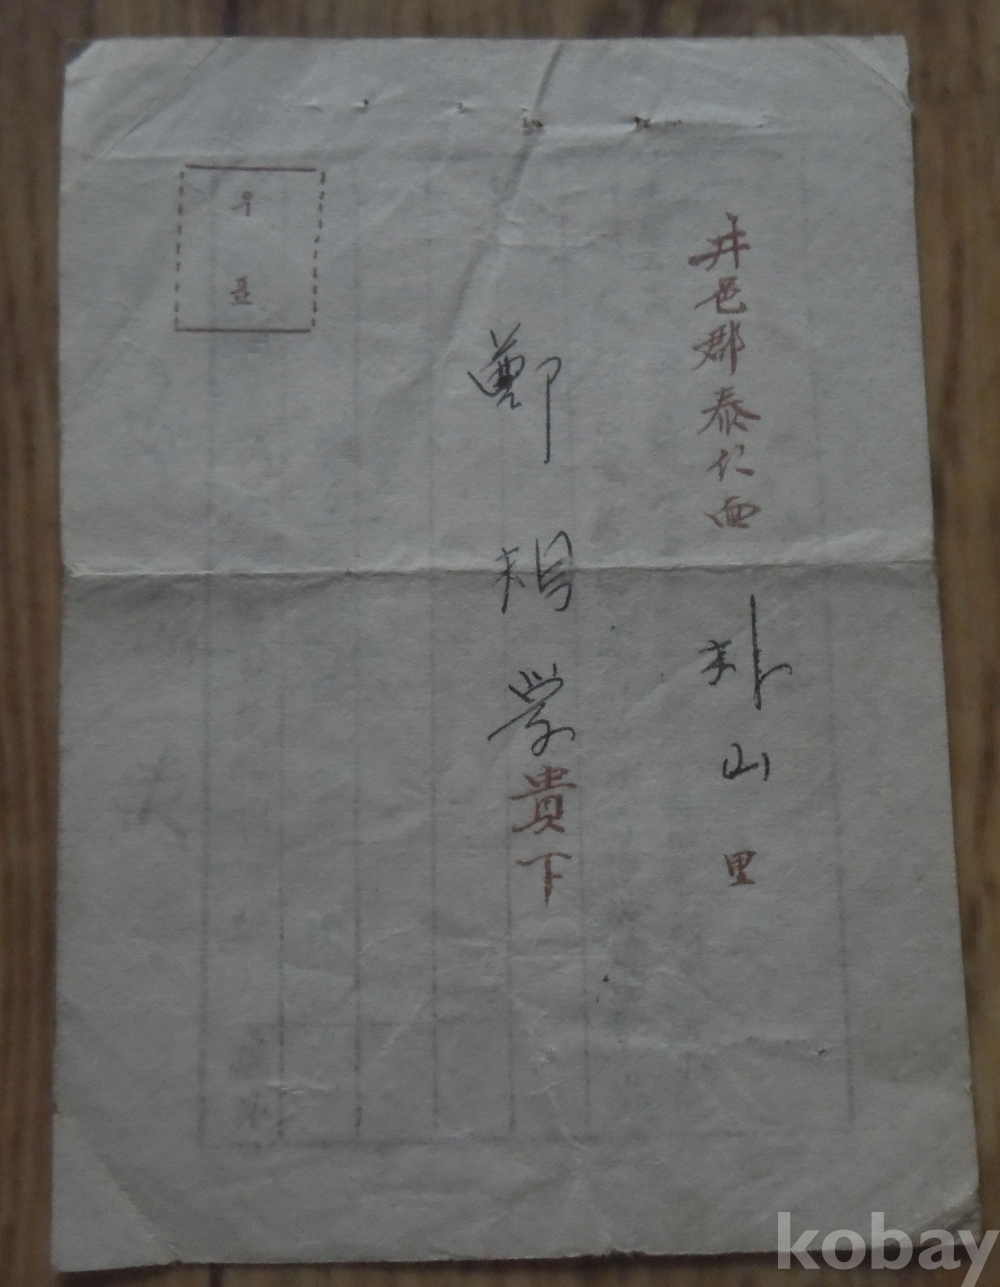 井邑郡泰仁面 朴山里
鄭 相 学 貴下
우표
kobay